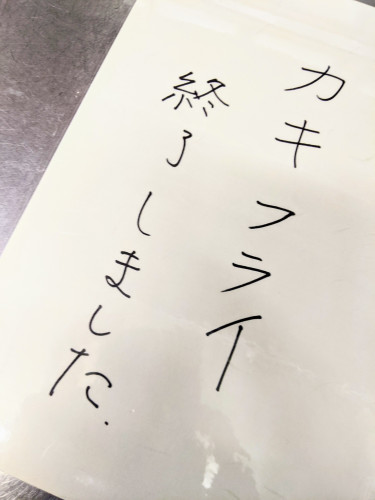 カキフライ
終了しました.